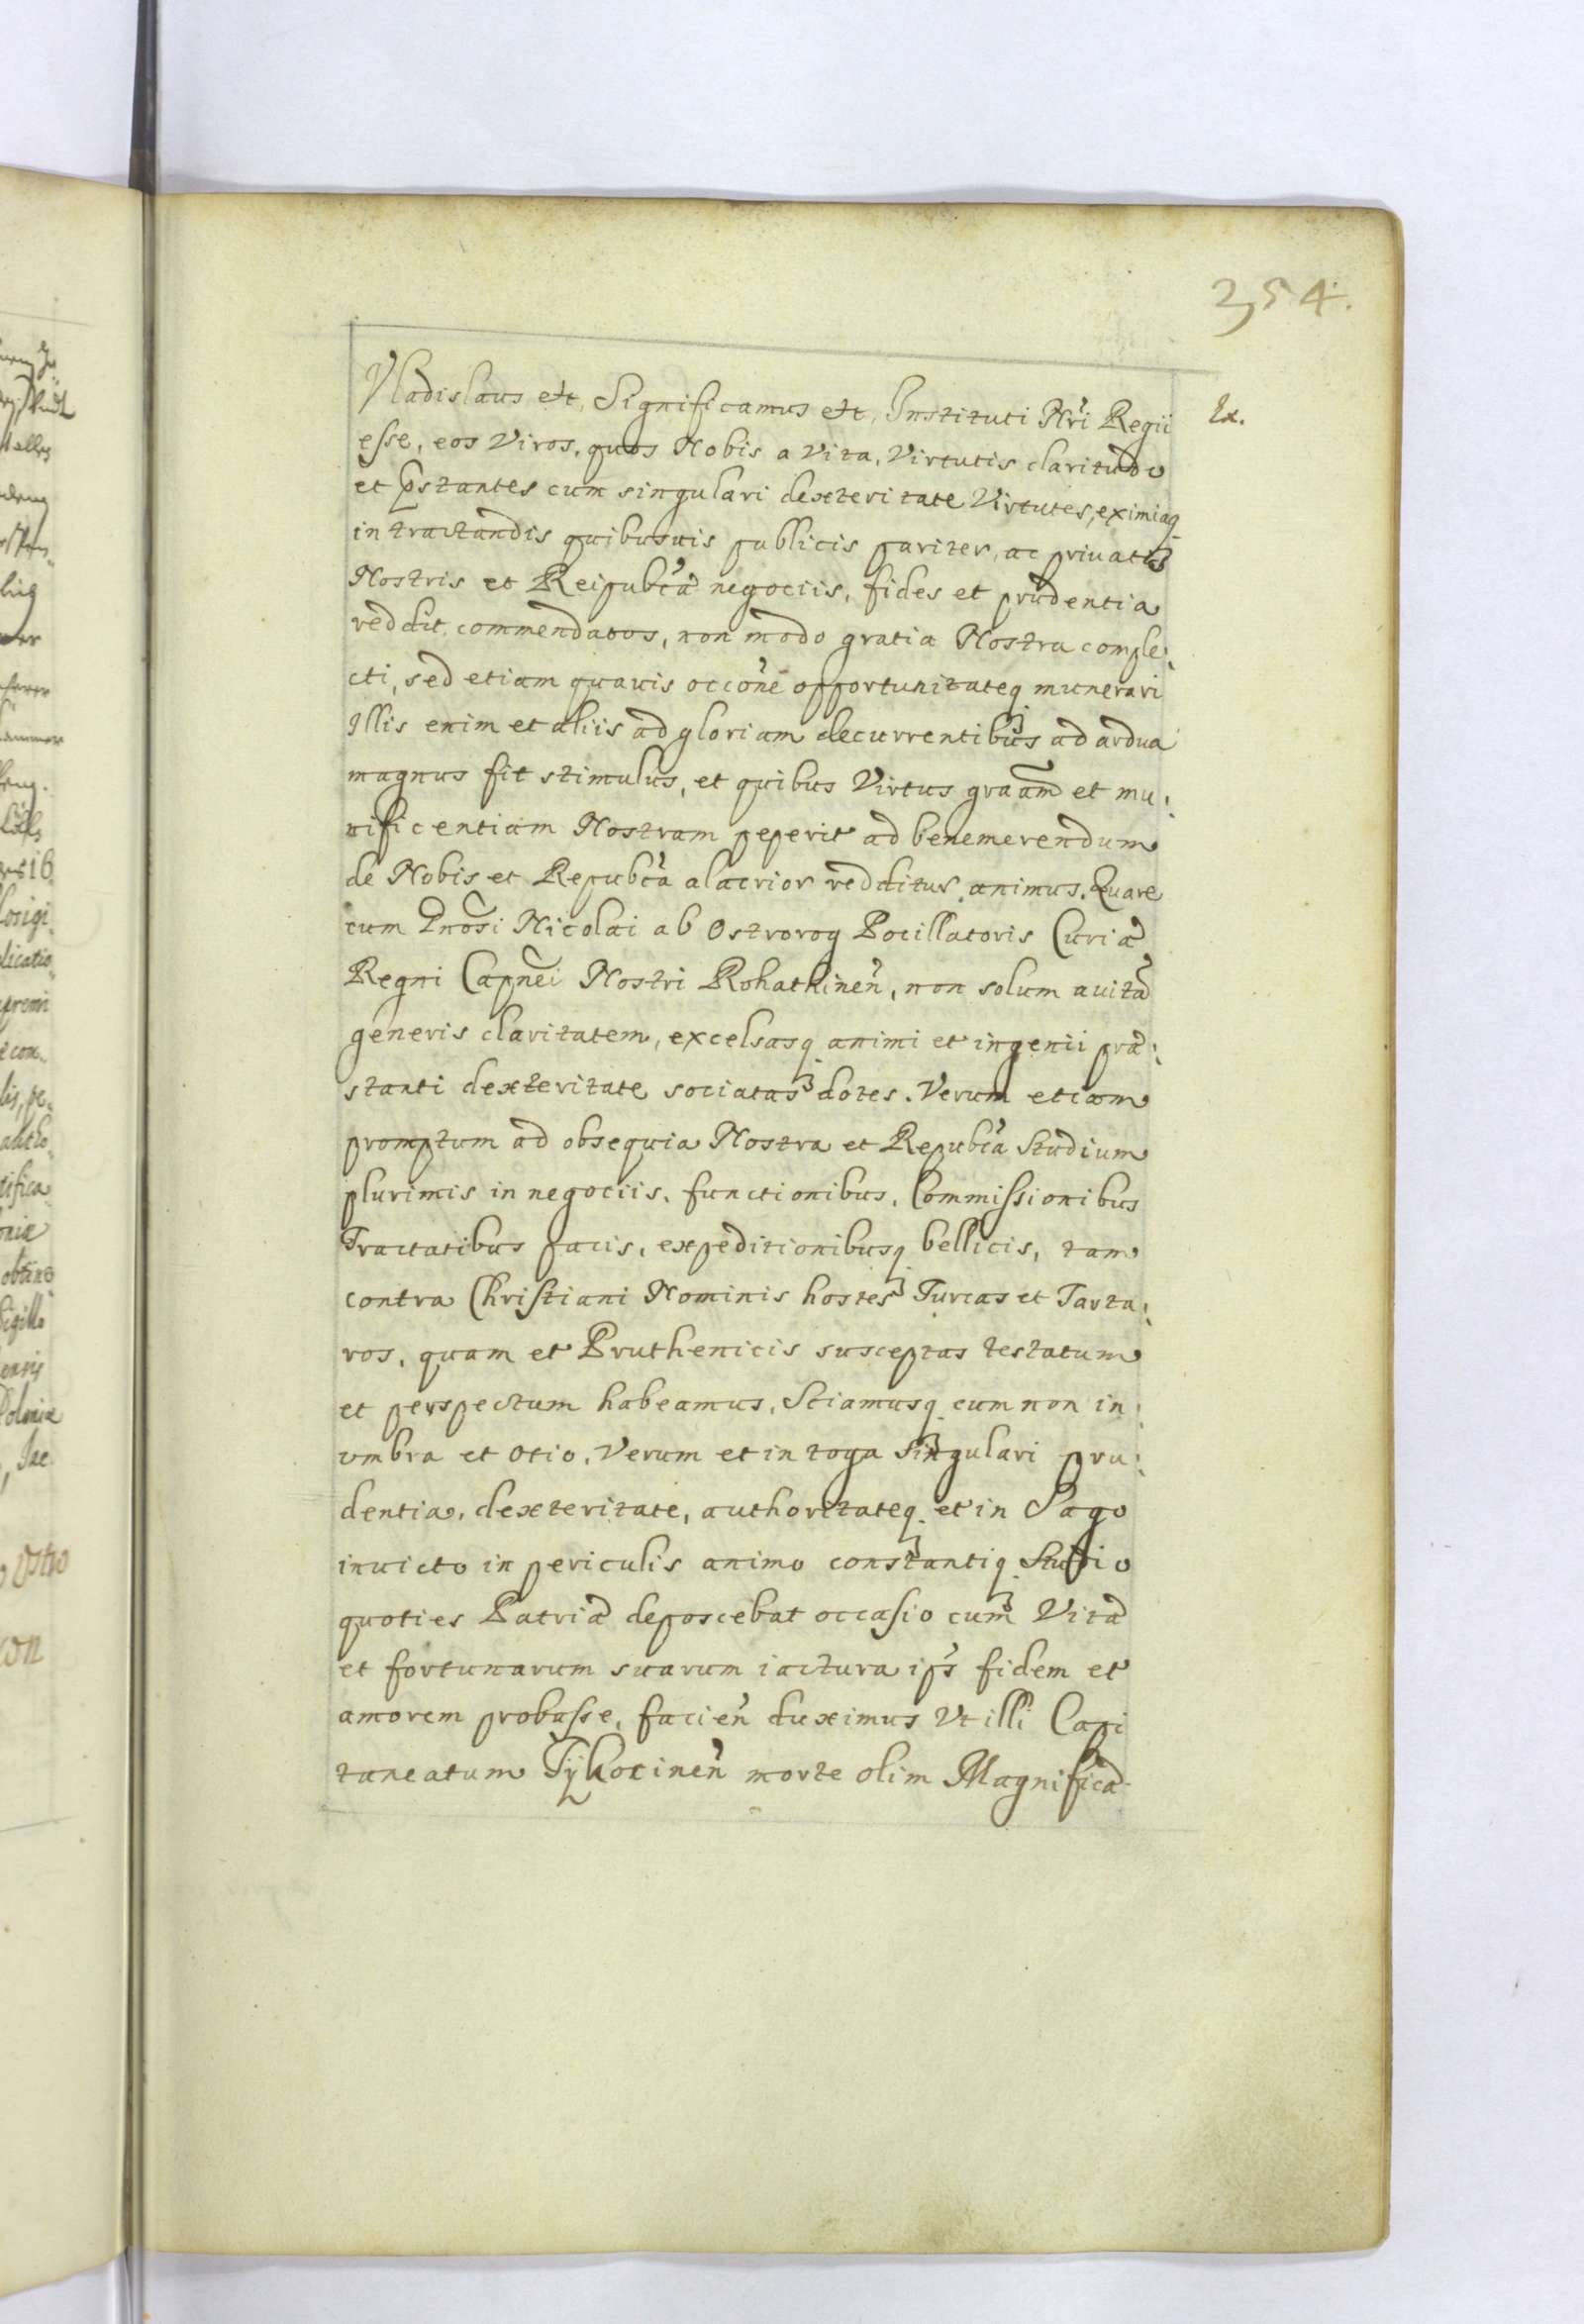 354.
Vladislaus etc, Significamus etc, Instituti Nri Regii
Ex.
esse, eos Viros, quos Nobis avita, Virtutis claritudo
et pstantes cum singulari dexteritate Virtutes, eximiaq
in tractandis quibusvis publicis pariter, ac privatis
Nostris et Reipubcæ negociis, fides et prudentia
reddit commendatos, non modo gratia Nostra comple:
cti, sed etiam quavis occone opportunitateq munerari
Illis enim et aliis ad gloriam decurrentibus ad ardua
magnus fit stimulus, et quibus Virtus graam et mu:
nificentiam Nostram peperit ad benemerendum
de Nobis et Repubca alacrior redditur animus. Quare
cum Gnosi Nicolai ab Ostrorog Pocillatoris Curiæ
Regni Capnei Nostri Rohatinen, non solum avitã
generis claritatem, excelsasq animi et ingenii præ:
stanti dexteritate sociatas dotes. Verum etiam
promptum ad obsequia Nostra et Repubcæ Studium
plurimis in negociis, functionibus, Commissionibus
Tractatibus pacis, expeditionibusq bellicis, tam
contra Christiani Nominis hostes Turcas et Tarta:
ros, quam et Pruthenicis susceptas testatum
et perspectum habeamus, Sciamusq eum non in
vmbra et otio, Verum et in toga Singulari pru:
dentia, dexteritate, authoritateq et in Sago
invicto in periculis animo constantiq Studio
quoties Patriæ deposcebat occasio cum Vitæ
et fortunarum suarum iactura ips fidem et
amorem probasse, facien duximus Vt illi Capi
taneatum Tykocinen morte olim Magnificæ